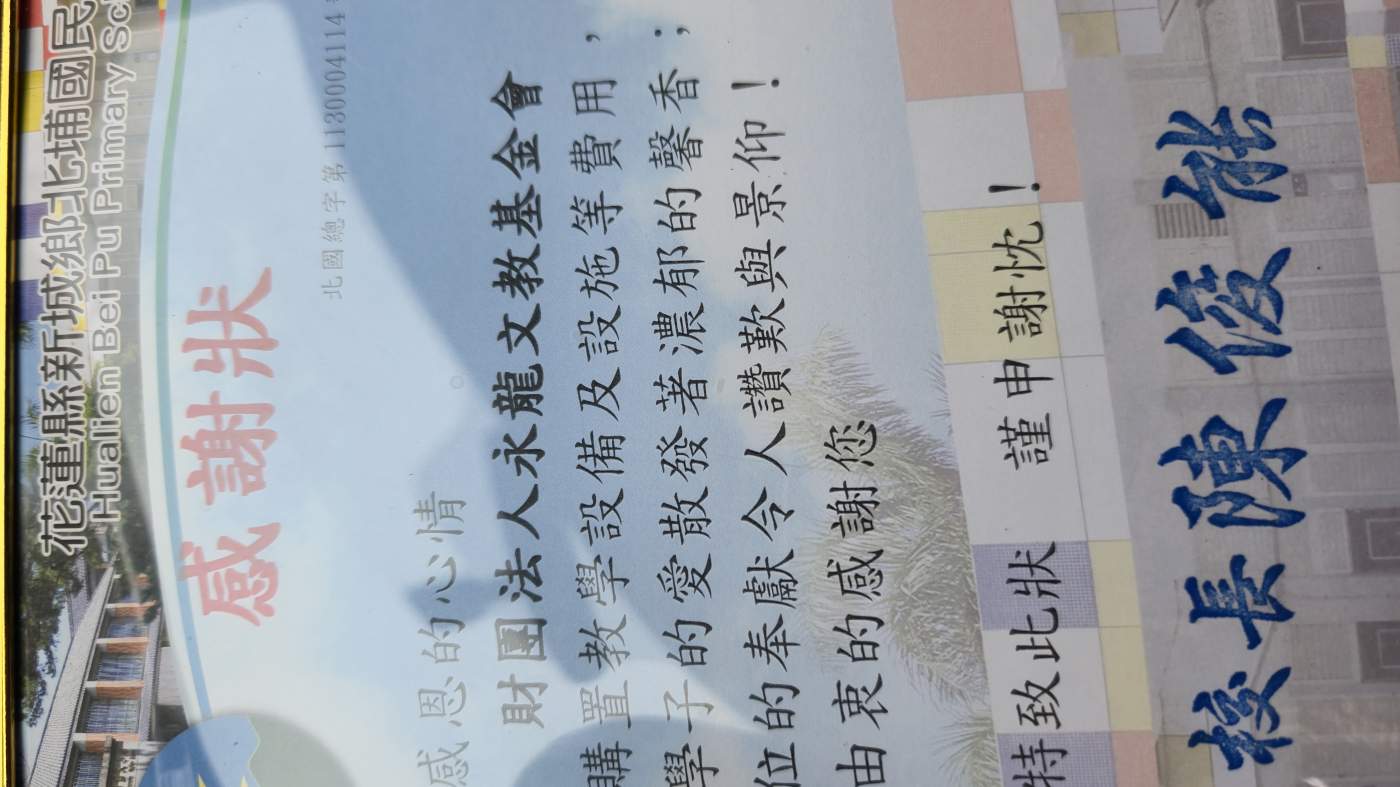 花蓮縣新城鄉北埔國民
Hualien Bei Pu Primary Sc
感謝狀
北國總字第 1130004114
感恩的心情
財團法人永龍文教基金會
購置教學設備及設施等費用，
學子的愛散發著濃郁的馨香；
位的奉獻令人讚歎與景仰！
由衷的感謝您
特致此狀 謹申謝忱！
校長陳俊能